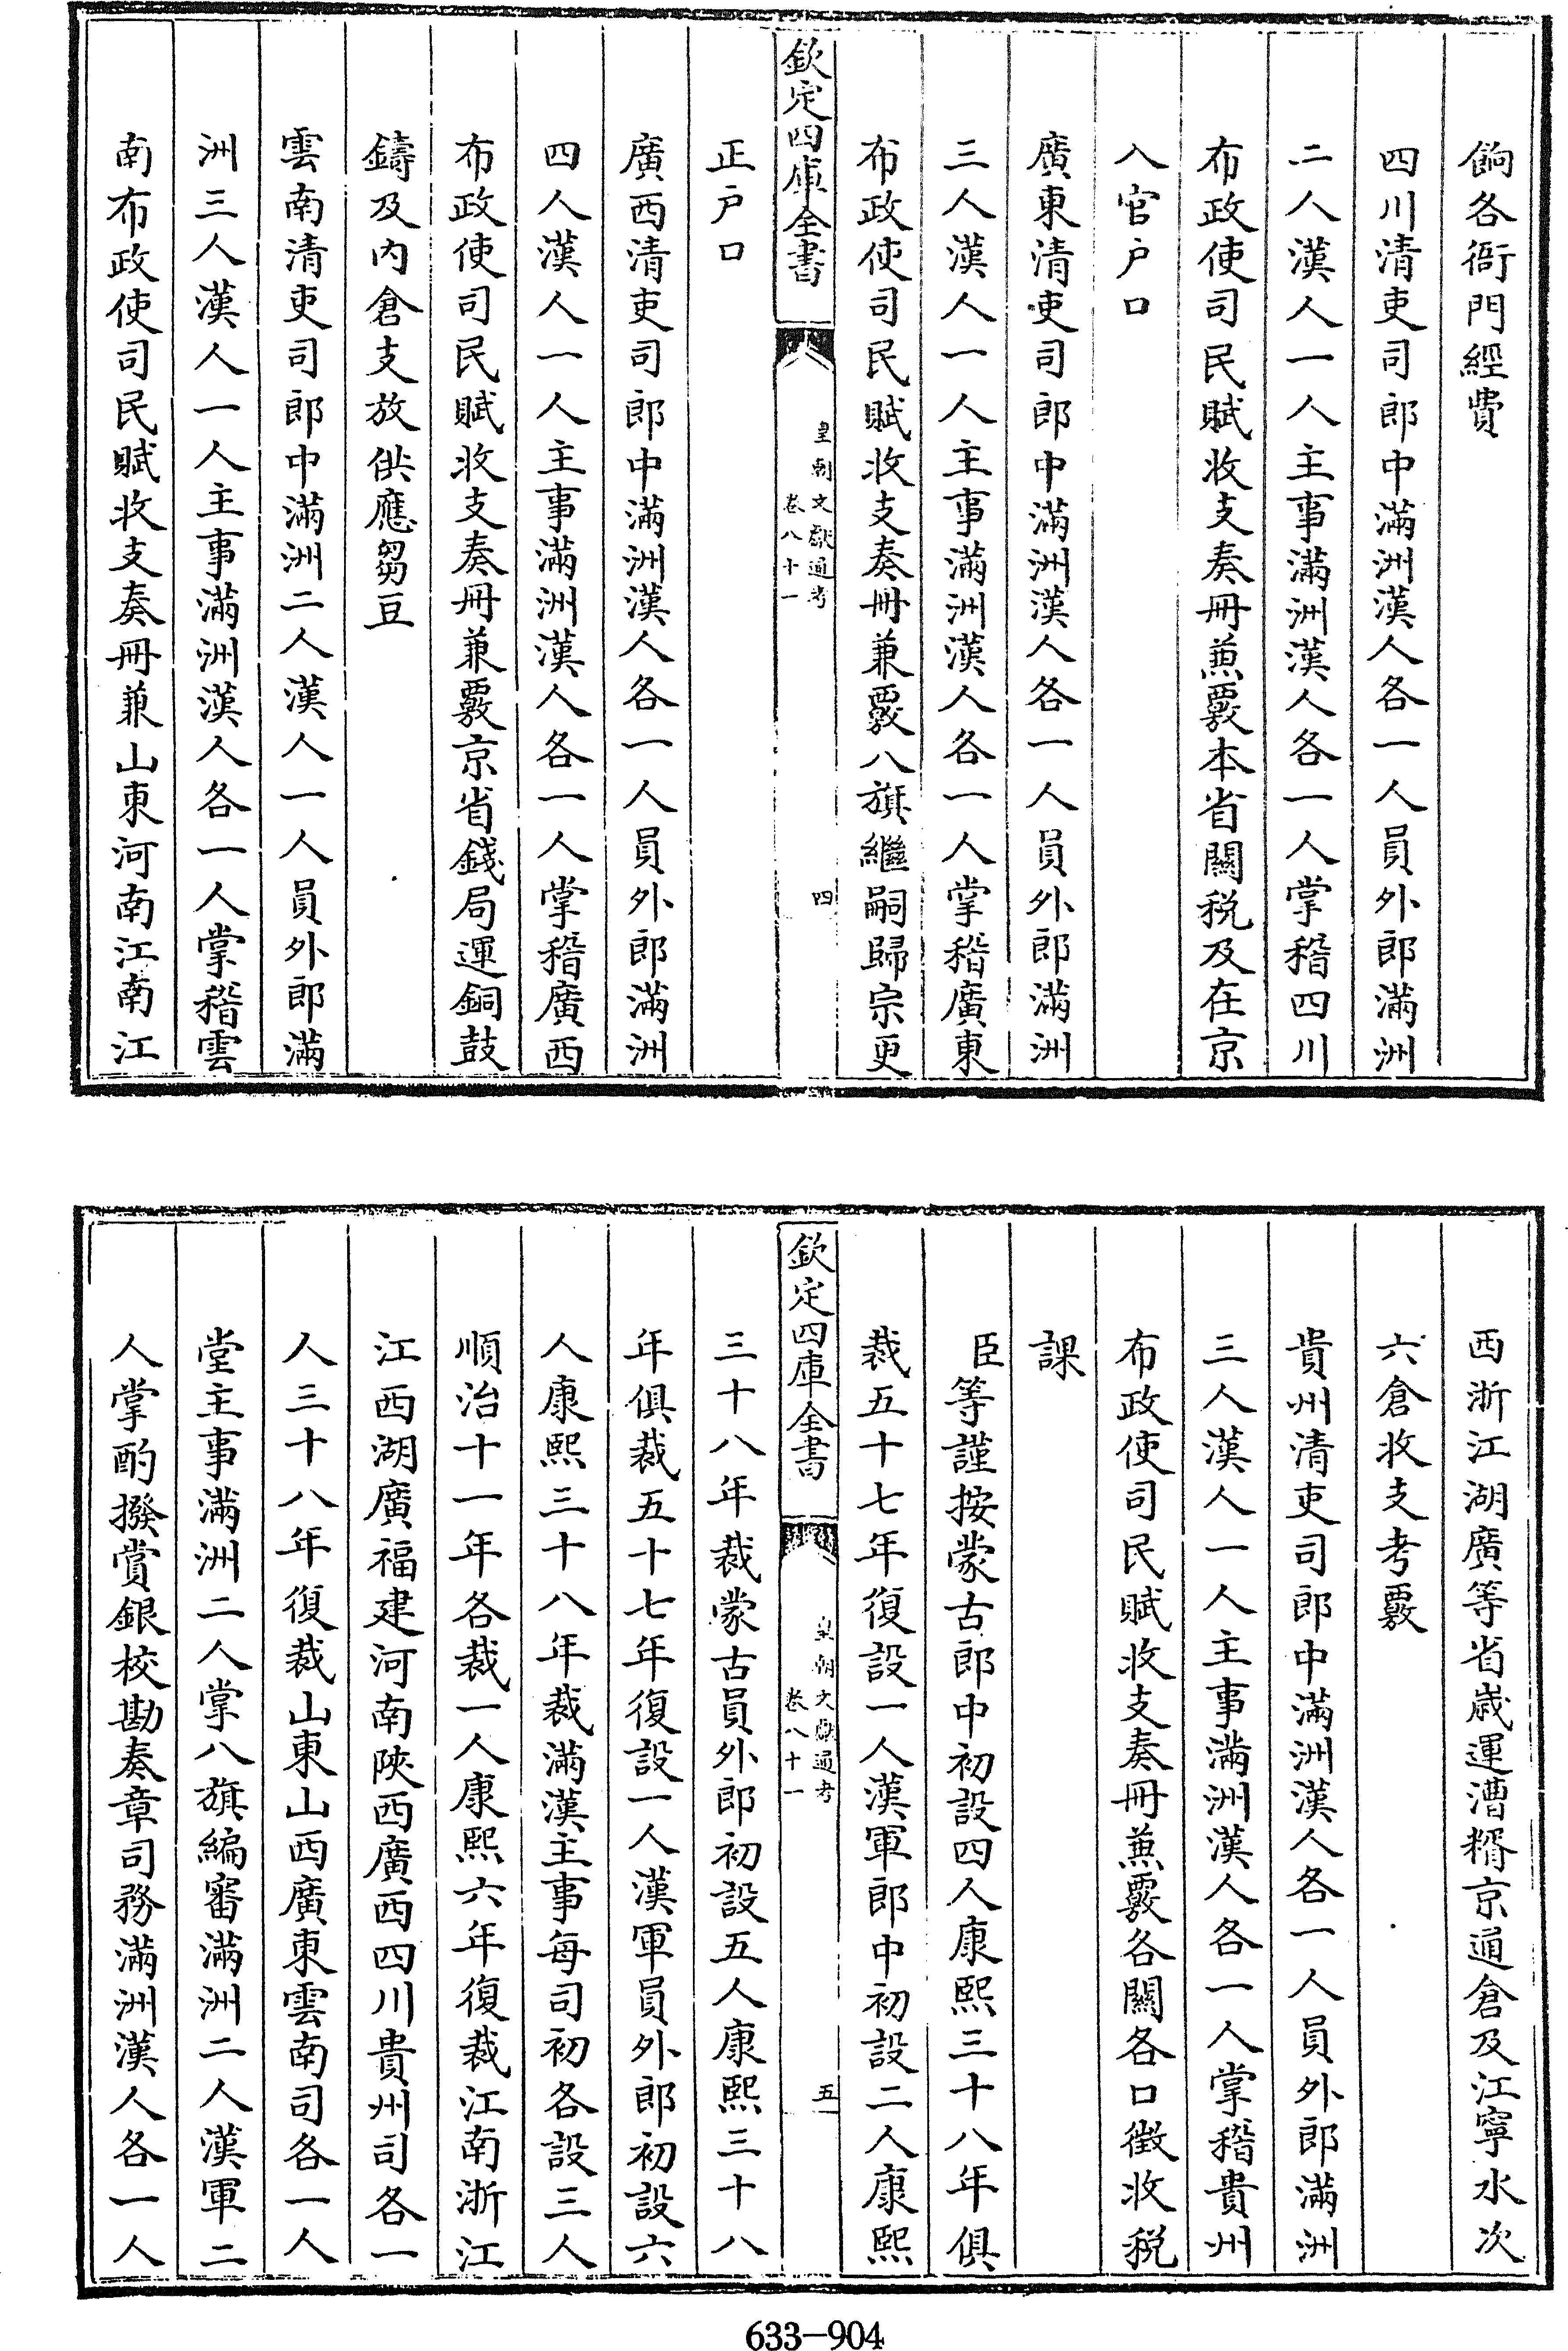 餉各衙門經費
四川清吏司郎中滿洲漢人各一人員外郎滿洲
二人漢人一人主事滿洲漢人各一人掌稽四川
布政使司民賦收支奏冊兼覈本省關税及在京
入官户口
廣東清吏司郎中滿洲漢人各一人員外郎滿洲
三人漢人一人主事滿洲漢人各一人掌稽廣東
布政使司民賦收支奏冊兼覈八旗繼嗣歸宗更
欽定四庫全書
皇朝文獻通考
卷八十一
四
正户口
廣西清吏司郎中滿洲漢人各一人員外郎滿洲
四人漢人一人主事滿洲漢人各一人掌稽廣西
布政使司民賦收支奏冊兼覈京省錢局運銅鼓
鑄及内倉支放供應芻豆
雲南清吏司郎中滿洲二人漢人一人員外郎滿
洲三人漢人一人主事滿洲漢人各一人掌稽雲
南布政使司民賦收支奏冊兼山東河南江南江
西浙江湖廣等省歲運漕糈京通倉及江寧水次
六倉收支考覈
貴州清吏司郎中滿洲漢人各一人員外郎滿洲
三人漢人一人主事滿洲漢人各一人掌稽貴州
布政使司民賦收支奏冊兼覈各關各口徵收税
課
臣等謹按蒙古郎中初設四人康熙三十八年俱
裁五十七年復設一人漢軍郎中初設二人康熙
欽定四庫全書
皇朝文獻通考
卷八十一
五
三十八年裁蒙古員外郎初設五人康熙三十八
年俱裁五十七年復設一人漢軍員外郎初設六
人康熙三十八年裁滿漢主事每司初各設三人
順治十一年各裁一人康熙六年復裁江南浙江
江西湖廣福建河南陜西廣西四川貴州司各一
人三十八年復裁山東山西廣東雲南司各一人
堂主事滿洲二人掌八旗編審滿洲二人漢軍二
人掌酌撥賞銀校勘奏章司務滿洲漢人各一人
633-904